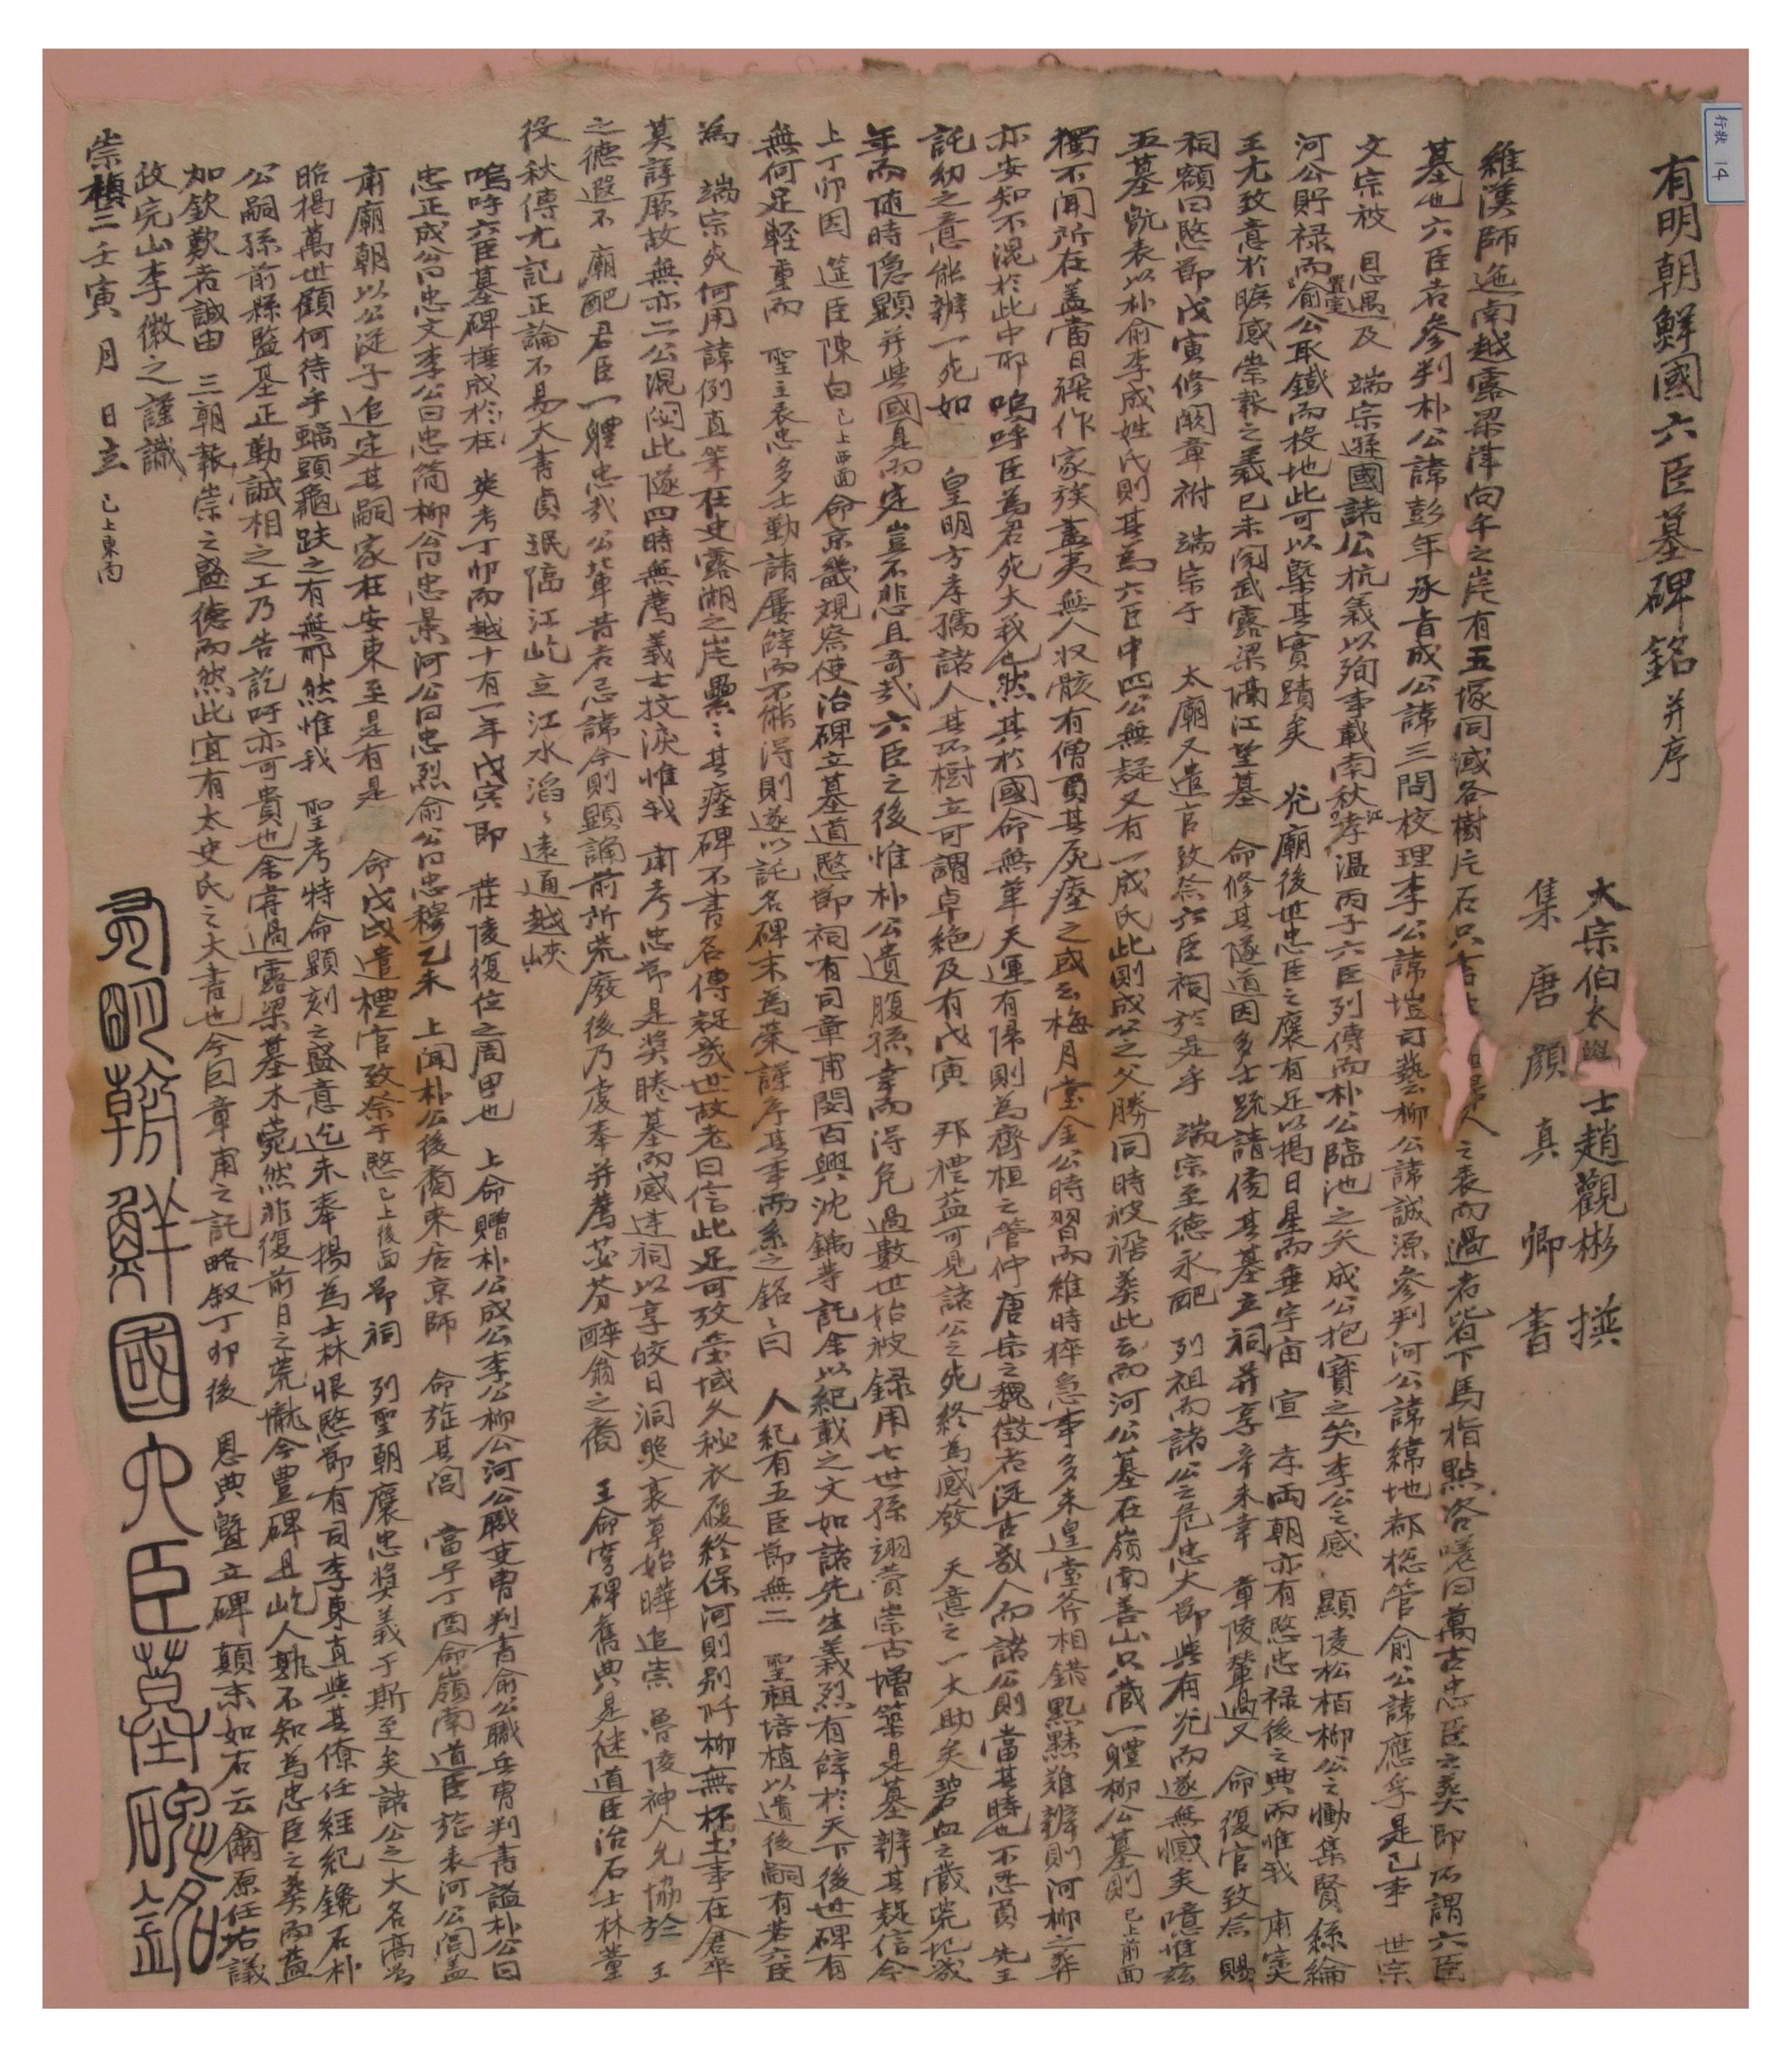 行狀 14
有明朝鮮國六臣墓碑銘 并序
大宗伯太學士趙觀彬 撰
集 唐 顔 真 卿 書
維漢師迤南越露梁津向午之岸有五塚同域各樹片石只書 人之表而過者皆下馬指點咨嗟曰萬古忠臣之葬卽所謂六臣
墓也六臣者參判朴公諱彭年承旨成公諱三問校理李公諱塏司藝柳公諱誠源參判河公諱緯地都摠管俞公諱應孚是已事 世宗
文宗被 恩遇及 端宗遜國諸公抗義以殉事載南秋江孝溫丙子六臣列傳而朴公臨池之矢成公抱寶之哭李公之感 顯陵松栢柳公之慟集賢絲綸
河公貯祿而置室俞公取鐵而投地此可以槩其實蹟矣 光廟後世忠臣之襃有足以揭日星而垂宇宙 宣 孝兩朝亦有愍忠祿後之典而惟我 肅寧
王尤致意於 感崇報之義己未閱武露梁隔江望墓 命修其隧道因多士疏請 其墓立祠并享辛未幸 章陵輦過又 命復官致祭賜
祠額曰愍節戊寅修闕章祔 端宗于 太廟又遣官致祭六臣祠於是乎 端宗至德永配 列祖而諸公危忠大節與有光而遂無憾矣噫惟玆
五墓旣表以朴俞李成姓氏則其爲六臣中四公無疑又有一成氏此則成公之父勝同時被禍葬此云而河公墓在嶺南善山只藏一軆柳公墓則 已上前面
獨不聞所在盖當日禍作家族盡夷無人收骸有僧負其屍瘞之或云梅月堂金公時習而維時猝急事多未遑堂斧相錯點黕難辨則河柳之葬
亦安知不混於此中耶嗚呼臣爲君死大義也然其於國命無革天運有歸則爲齊桓之管仲唐宗之魏徵者從古數人而諸公則當其時也不忍負 先王
託幼之意能辨一死如 皇明方孝孺諸人其所樹立可謂卓絶及有戊寅 邦禮益可見諸公之死終爲感發 天意之一大助矣碧血之藏荒圮幾
年而隨時隱顯并與國是而定豈不悲且奇哉六臣之後惟朴公遺腹孫幸而得免過數世始被錄用七世孫翊賛崇古增築是墓辨其疑信今
上丁卯因 筵臣陳白 已上西面 命京畿觀察使治碑立墓道愍節祠有司章甫閔百興沈鏑等託余以紀載之文如諸先生義烈有辭於天下後世碑有
無何足輕重而 聖主表忠多士勤請屢辭而不能得則遂以託名碑末爲榮謹序其事而系之銘銘曰 人紀有五臣節無二 聖祖培植以遺後嗣有若六臣
爲 端宗死何用諱例直筆在史露湖之岸纍纍其瘞碑不書名傳疑幾世故老曰信此足可攷塋域久秘衣履終保河則别阡柳無杯土事在倉卒
莫詳厥故無亦二公混閟此隧四時無薦義士抆淚惟我 肅考忠節是奬睠墓而感建祠以享皎日洞照褒草始暐追崇 魯陵神人允協於 王
之德遐不 廟配君臣一軆忠哉公輩昔若忌諱今則顯誦前所荒廢後乃虔奉并薦苾芬醉翁之裔 王命穹碑舊典是繼道臣治石士林董
役秋傳尤記正論不易大書貞珉隔江屹立江水滔滔遠通越峽
嗚呼六臣墓碑捶成於在 英考丁卯而越十有一年戊寅卽 莊陵復位之周甲也 上命贈朴公成公李公柳公河公職吏曹判書俞公職兵曹判書諡朴公曰
忠正成公曰忠文李公曰忠簡柳公曰忠景河公曰忠烈俞公曰忠穆乙未 上聞朴公後裔來居京師 命旌其閭 當宁丁酉命嶺南道臣旌表河公閭盖
肅廟朝以公從子追定其嗣家在安東至是有是 命戊戌遣禮官致祭于愍 已上後面 節祠 列聖朝襃忠奬義于斯至矣諸公之大名高節
昭揭萬世顧何待乎螭頭龜趺之有無耶然惟我 聖考特命顯刻之盛意迄未奉揚爲士林恨愍節有司李東直與其僚任經紀鑱石朴
公嗣孫前縣監基正勤誠相之工乃告訖吁亦可貴也余嘗過露梁墓木菀然非復前日之荒朧今豐碑且屹人孰不知爲忠臣之葬而益
加欽歎者誠由 三朝報崇之盛德而然此宜有太史氏之大書也今因章甫之託略敍丁卯後 恩典曁立碑顚末如右云爾原任右議
政完山李徽之謹識
崇禎三壬寅 月 日立 已上東面
有明朝鮮國六臣墓碑銘